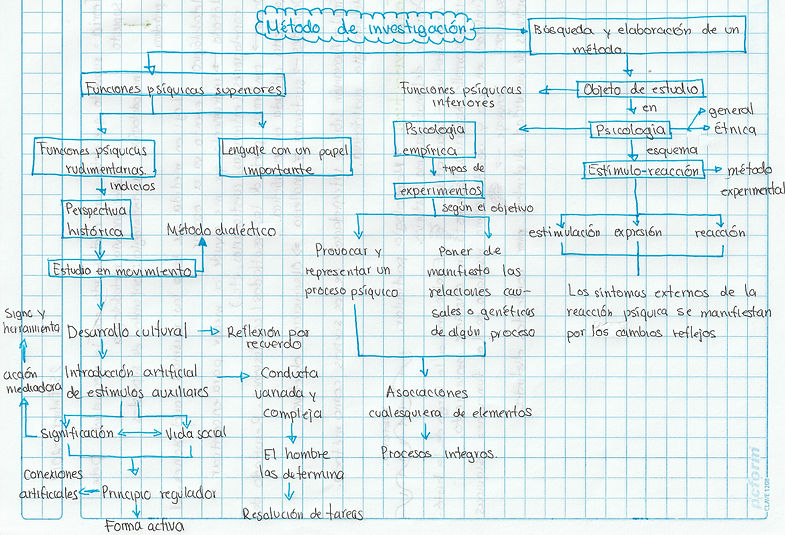 Método de investigación
Búsqueda y elaboración de un
método.
Funciones psíquicas superiores
Funciones psíquicas
inferiores
Objeto de estudio
en
Psicología
general
étnica
Psicología
empírica
esquema
Funciones psíquicas
rudimentarias.
Lenguaje con un papel
importante
tipos de
Estímulo-reacción
método
experimental
indicios
experimentos
según el objetivo
Perspectiva
histórica
Método dialéctico
estimulación expresión reacción
Provocar y
representar un
proceso psíquico
Poner de
manifiesto las
relaciones cau-
sales o genéticas
de algún proceso
Estudio en movimiento
Los síntomas externos de la
reacción psíquica se manifiestan
por los cambios reflejos
Signo y
herramienta
Desarrollo cultural
Reflexión por
recuerdo
acción
mediadora
Introducción artificial
de estímulos auxiliares
Conducta
variada y
compleja
Asociaciones
cualesquiera de elementos
Significación
Vida social
El hombre
las determina
Procesos íntegros.
Conexiones
artificiales
Principio regulador
Resolución de tareas
Forma activa
CLAVE 1208